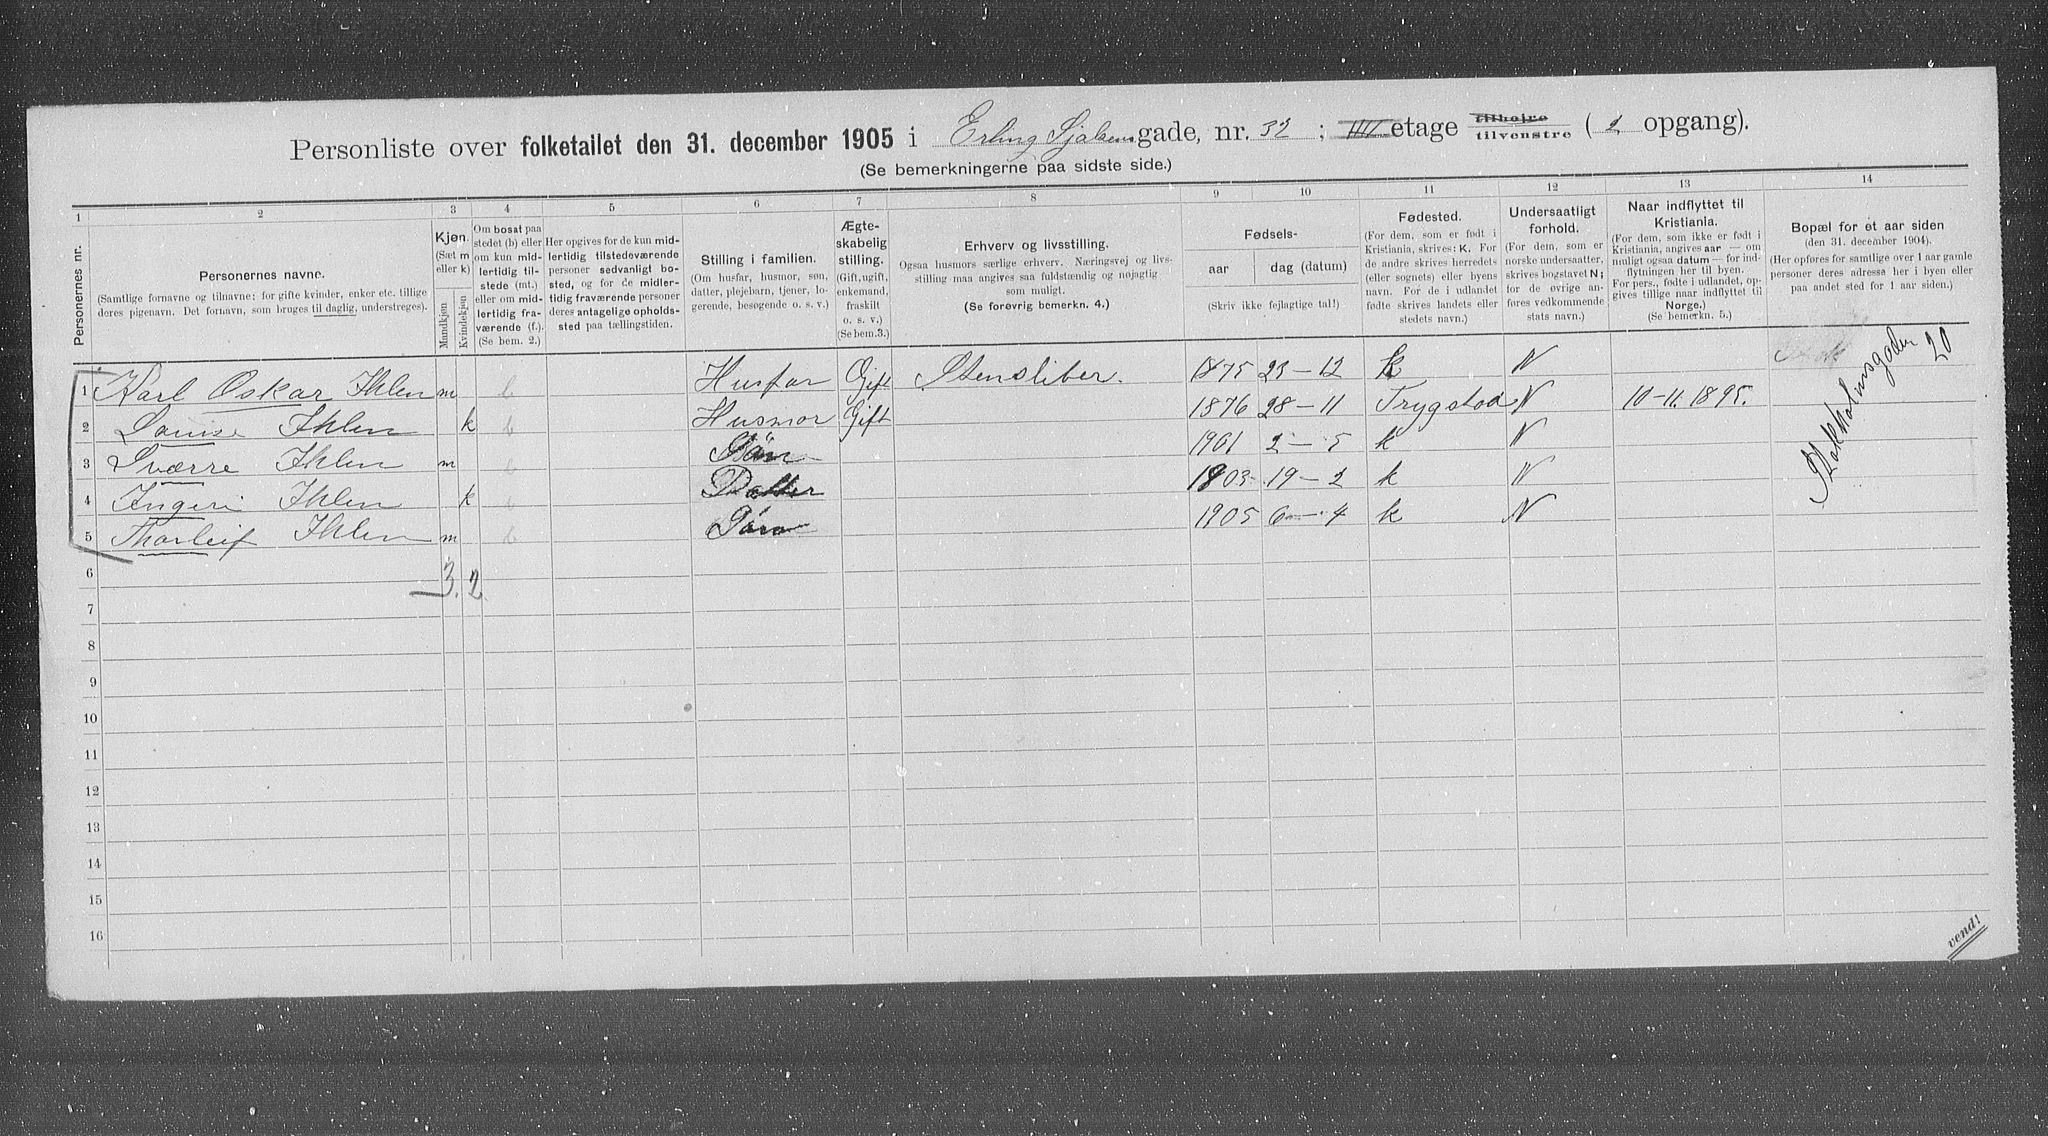 Personliste over folketallet den 31. december 1905 i Erling Sjalsens gade, nr. 32 ; IIII etage tilhøjre tilvenstre ( 2 opgang).
(Se bemerkningerne paa sidste side.)
1 2 3 4 5 6 7 8 9 10 11 12 13 14
Personernes nr.
Personernes navne.
(Samtlige fornavne og tilnavne; for gifte kvinder, enker etc. tillige
deres pigenavn. Det fornavn, som bruges til daglig, understreges).
Kjøn.
(Sæt m
eller k)
Mandkjøn
Kvindekjøn
Om bosat paa
stedet (b) eller
om kun mid-
lertidig til-
stede (mt.)
eller om mid-
lertidig fra-
værende (f.).
(Se bem. 2.)
Her opgives for de kun mid-
lertidig tilstedeværende
personer sedvanlig bo-
sted, og for de midler-
tidig fraværende personer
deres antagelige opholds-
sted paa tællingstiden.
Stilling i familien.
(Om husfar, husmor, søn,
datter, plejebarn, tjener, lo-
gerende, besøgende o. s. v.)
Ægte-
skabelig
stilling.
(Gift, ugift,
enkemand,
fraskilt
o. s. v.)
(Se bem.3.)
Erhverv og livsstilling.
Ogsaa husmors særlige erhverv. Næringsvej og livs-
stilling maa angives saa fuldstændig og nøjagtig
som muligt.
(Se forøvrig bemerkn. 4.)
Fødsels-
aar dag (datum)
(Skriv ikke fejlagtige tal!)
Fødested.
(For dem, som er født i
Kristiania, skrives: K. For
de andre skrives herredets
(eller sognets) eller byens
navn. For de i udlandet
fødte skrives landets eller
stedets navn.)
Undersaatligt
forhold.
(For dem, som er
norske undersaatter,
skrives bogstavet N;
for de øvrige an-
føres vedkommende
stats navn.)
Naar indflyttet til
Kristiania.
(For dem, som ikke er født i
Kristiania, angives aar — om
muligt ogsaa datum — for ind-
flytningen her til byen.
For pers., fødte i udlandet, op-
gives tillige naar indflyttet til
Norge.)
(Se bemerkn. 5.)
Bopæl for et aar siden
(den 31. december 1904).
(Her opføres for samtlige over 1 aar gamle
personer deres adresse her i byen eller
paa andet sted for 1 aar siden.)
1 Karl Oskar Ihlen m b Husfar Gift Stensliber. 1875 23 – 12 k N
Stokholmsgaden 20
2 Louise Ihlen k b Husmor Gift 1876 28 – 11 Trygstad N 10–11. 1895.
3 Sværre Ihlen m b Sön 1901 2 – 5 k N
4 Ingeri Ihlen k b Datter 1903 19 – 2 k N
5 Thorleif Ihlen m b Sön 1905 6 – 4 k N
6 3. 2
7
8
9
10
11
12
13
14
15
16
vend!